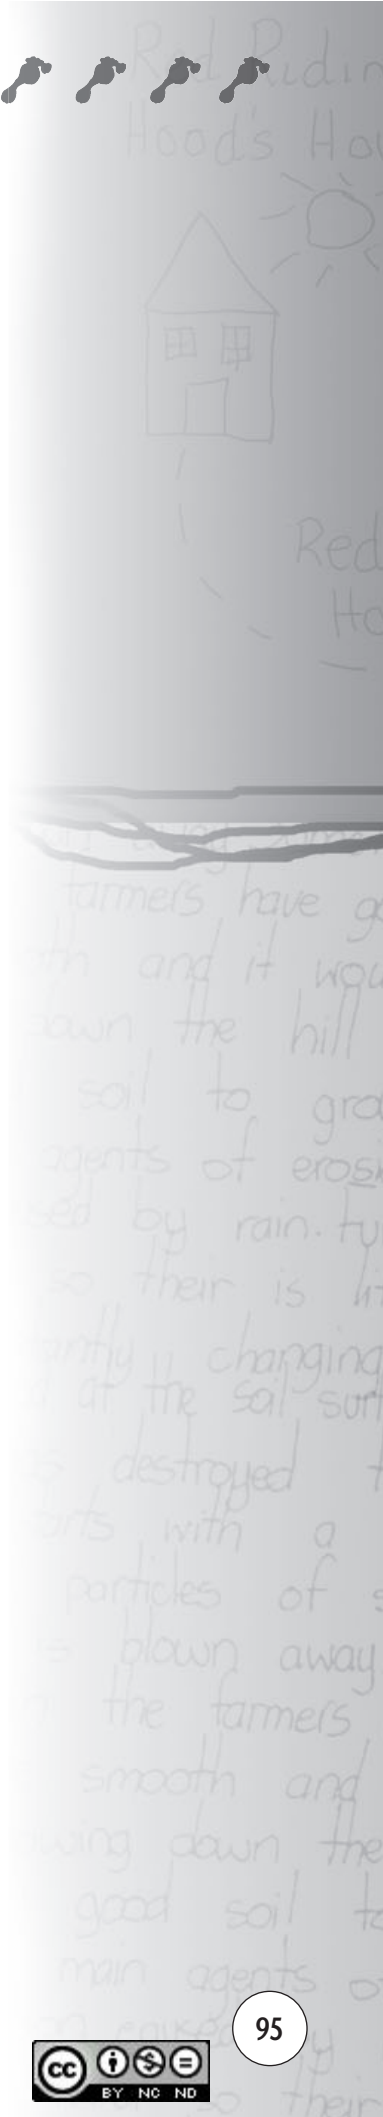 Red Ridin
Hood's Hou
Red
Ho
farmers have go
and it wou
down the hill
soil to gro
agents of erosi
by rain. tu
so their is lit
changing
at the soil surf
destroyed t
with a
particles of s
blown away
the farmers
smooth and
down the
good soil to
main agents o
95
by
cc
BY NC ND
so their